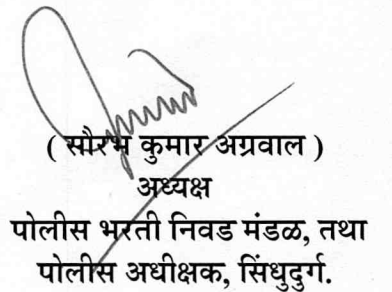 ( सौरभ कुमार अग्रवाल )
अध्यक्ष
पोलीस भरती निवड मंडळ, तथा
पोलीस अधीक्षक, सिंधुदुर्ग.